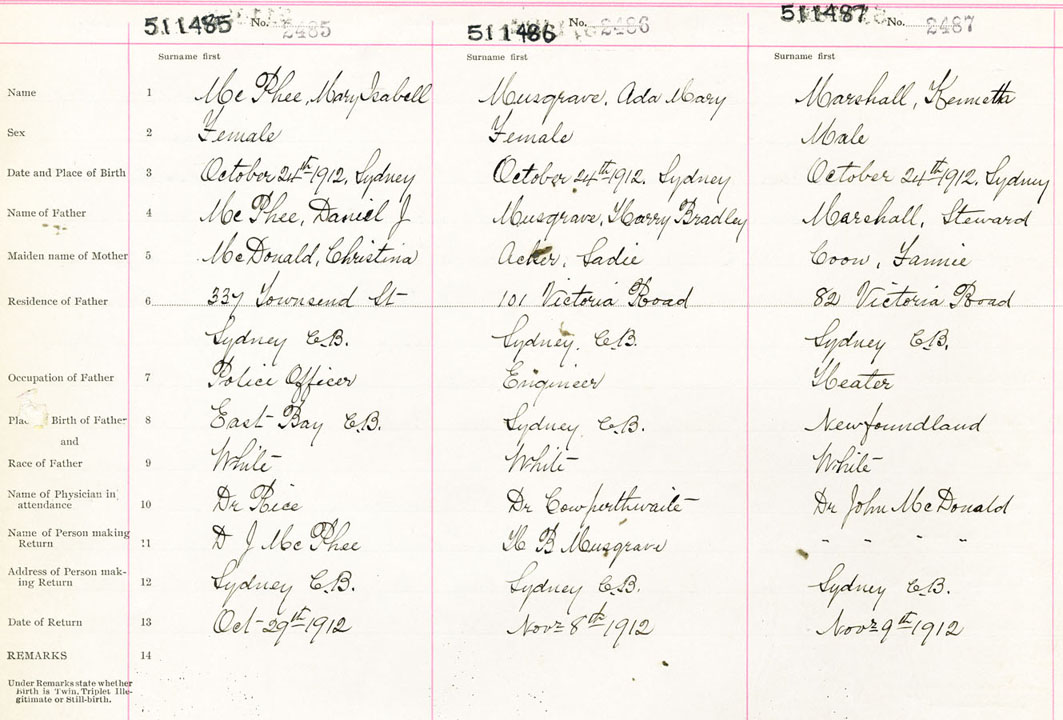 511485 No. 2485 511486 No. 2486 511487 No. 2487
Surname first Surname first Surname first
Name 1 Mc Phee, Mary Isabell Musgrave, Ada Mary Marshall, Kenneth
Sex 2 Female Female Male
Date and Place of Birth 3 October 24th 1912. Sydney October 24th 1912. Sydney October 24th 1912. Sydney
Name of Father 4 Mc Phee, Daniel J Musgrave, Harry Bradley Marshall, Steward
Maiden name of Mother 5 McDonald, Christina Acker, Sadie Coon, Fannie
Residence of Father 6 337 Townsend St 101 Victoria Road 82 Victoria Road
Sydney C.B. Sydney, C.B. Sydney C.B.
Occupation of Father 7 Police Officer Engineer Heater
Birth of Father 8 East Bay C.B. Sydney C.B. Newfoundland
and
Race of Father 9 White White White
Name of Physician in
attendance 10 Dr Rice Dr Cowperthwaite Dr John McDonald
Name of Person making
Return 11 D J McPhee H B Musgrave " " " "
Address of Person mak-
ing Return 12 Sydney C.B. Sydney C.B. Sydney C.B.
Date of Return 13 Oct 29th 1912 Novr 8th 1912 Novr 9th 1912
REMARKS 14
Under Remarks state whether
Birth is Twin, Triplet Ille-
gitimate or Still-birth.